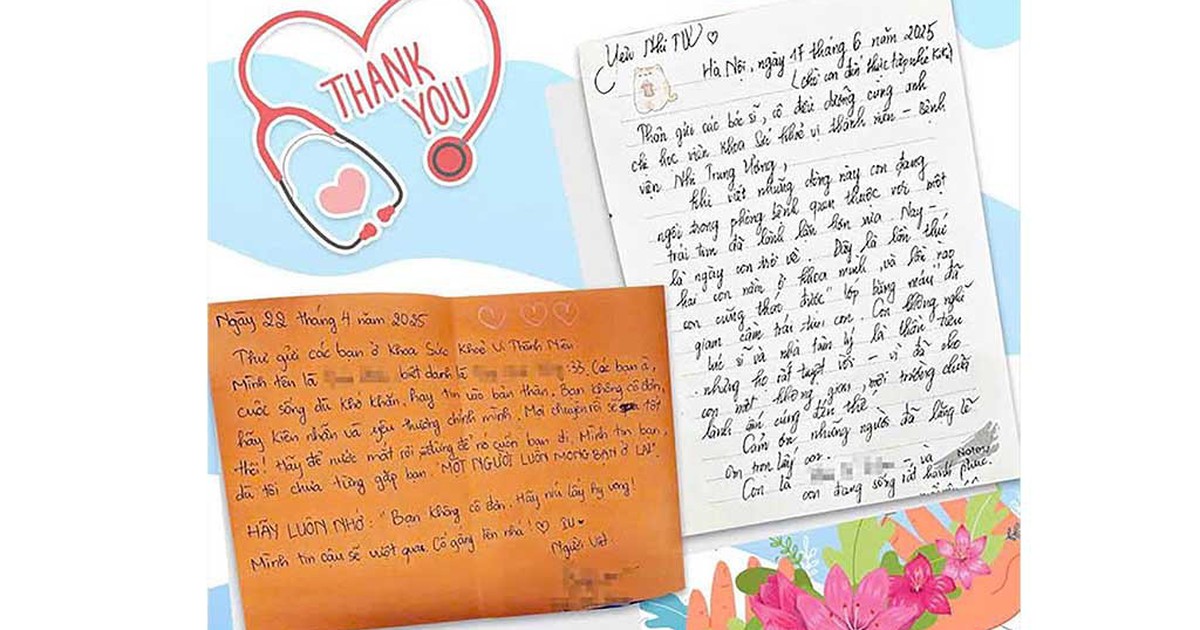 THANK
YOU
Ngày 22 tháng 4 năm 2025
Thư gửi các bạn ở Khoa Sức Khoẻ Vị Thành Niên
Mình tên là biệt danh là :33. Các bạn à,
cuộc sống dù khó khăn, hãy tin vào bản thân. Bạn không cô đơn,
hãy kiên nhẫn và yêu thương chính mình! Mọi chuyện rồi sẽ tốt
thôi! Hãy để nước mắt rơi đừng để nó cuốn bạn đi. Mình tin bạn,
dù tôi chưa từng gặp bạn "MỘT NGƯỜI LUÔN MONG BẠN Ở LẠI".
HÃY LUÔN NHỚ: "Bạn không cô đơn. Hãy níu lấy hy vọng!
Mình tin cậu sẽ vượt qua. Cố gắng lên nhá!♡ IU♥
Người viết
Yêu Nhi TW ♡
Hà Nội, ngày 17 tháng 6 năm 2025
Thân gửi các bác sĩ, cô điều dưỡng cùng anh
chị học viên Khoa Sức khoẻ vị thành niên – Bệnh
viện Nhi Trung Ương,
Khi viết những dòng này con đang
ngồi trong phòng bệnh quen thuộc với một
trái tim đã lành lặn hơn xưa. Nay –
là ngày con trở về. Đây là lần thứ
hai con nằm ở khoa mình, và lần nào
con cũng thấy được "lớp băng" đã
giam cầm trái tim con. Con không nghĩ
bác sĩ và nhà tâm lý là thần tiên
nhưng họ rất tuyệt vời – vì đã cho
con một không gian, môi trường chữa
lành ấm cúng đến thế!
Cảm ơn những người đã lặng lẽ
ôm trọn lấy con.
Con là – và
con đang sống rất hạnh phúc.